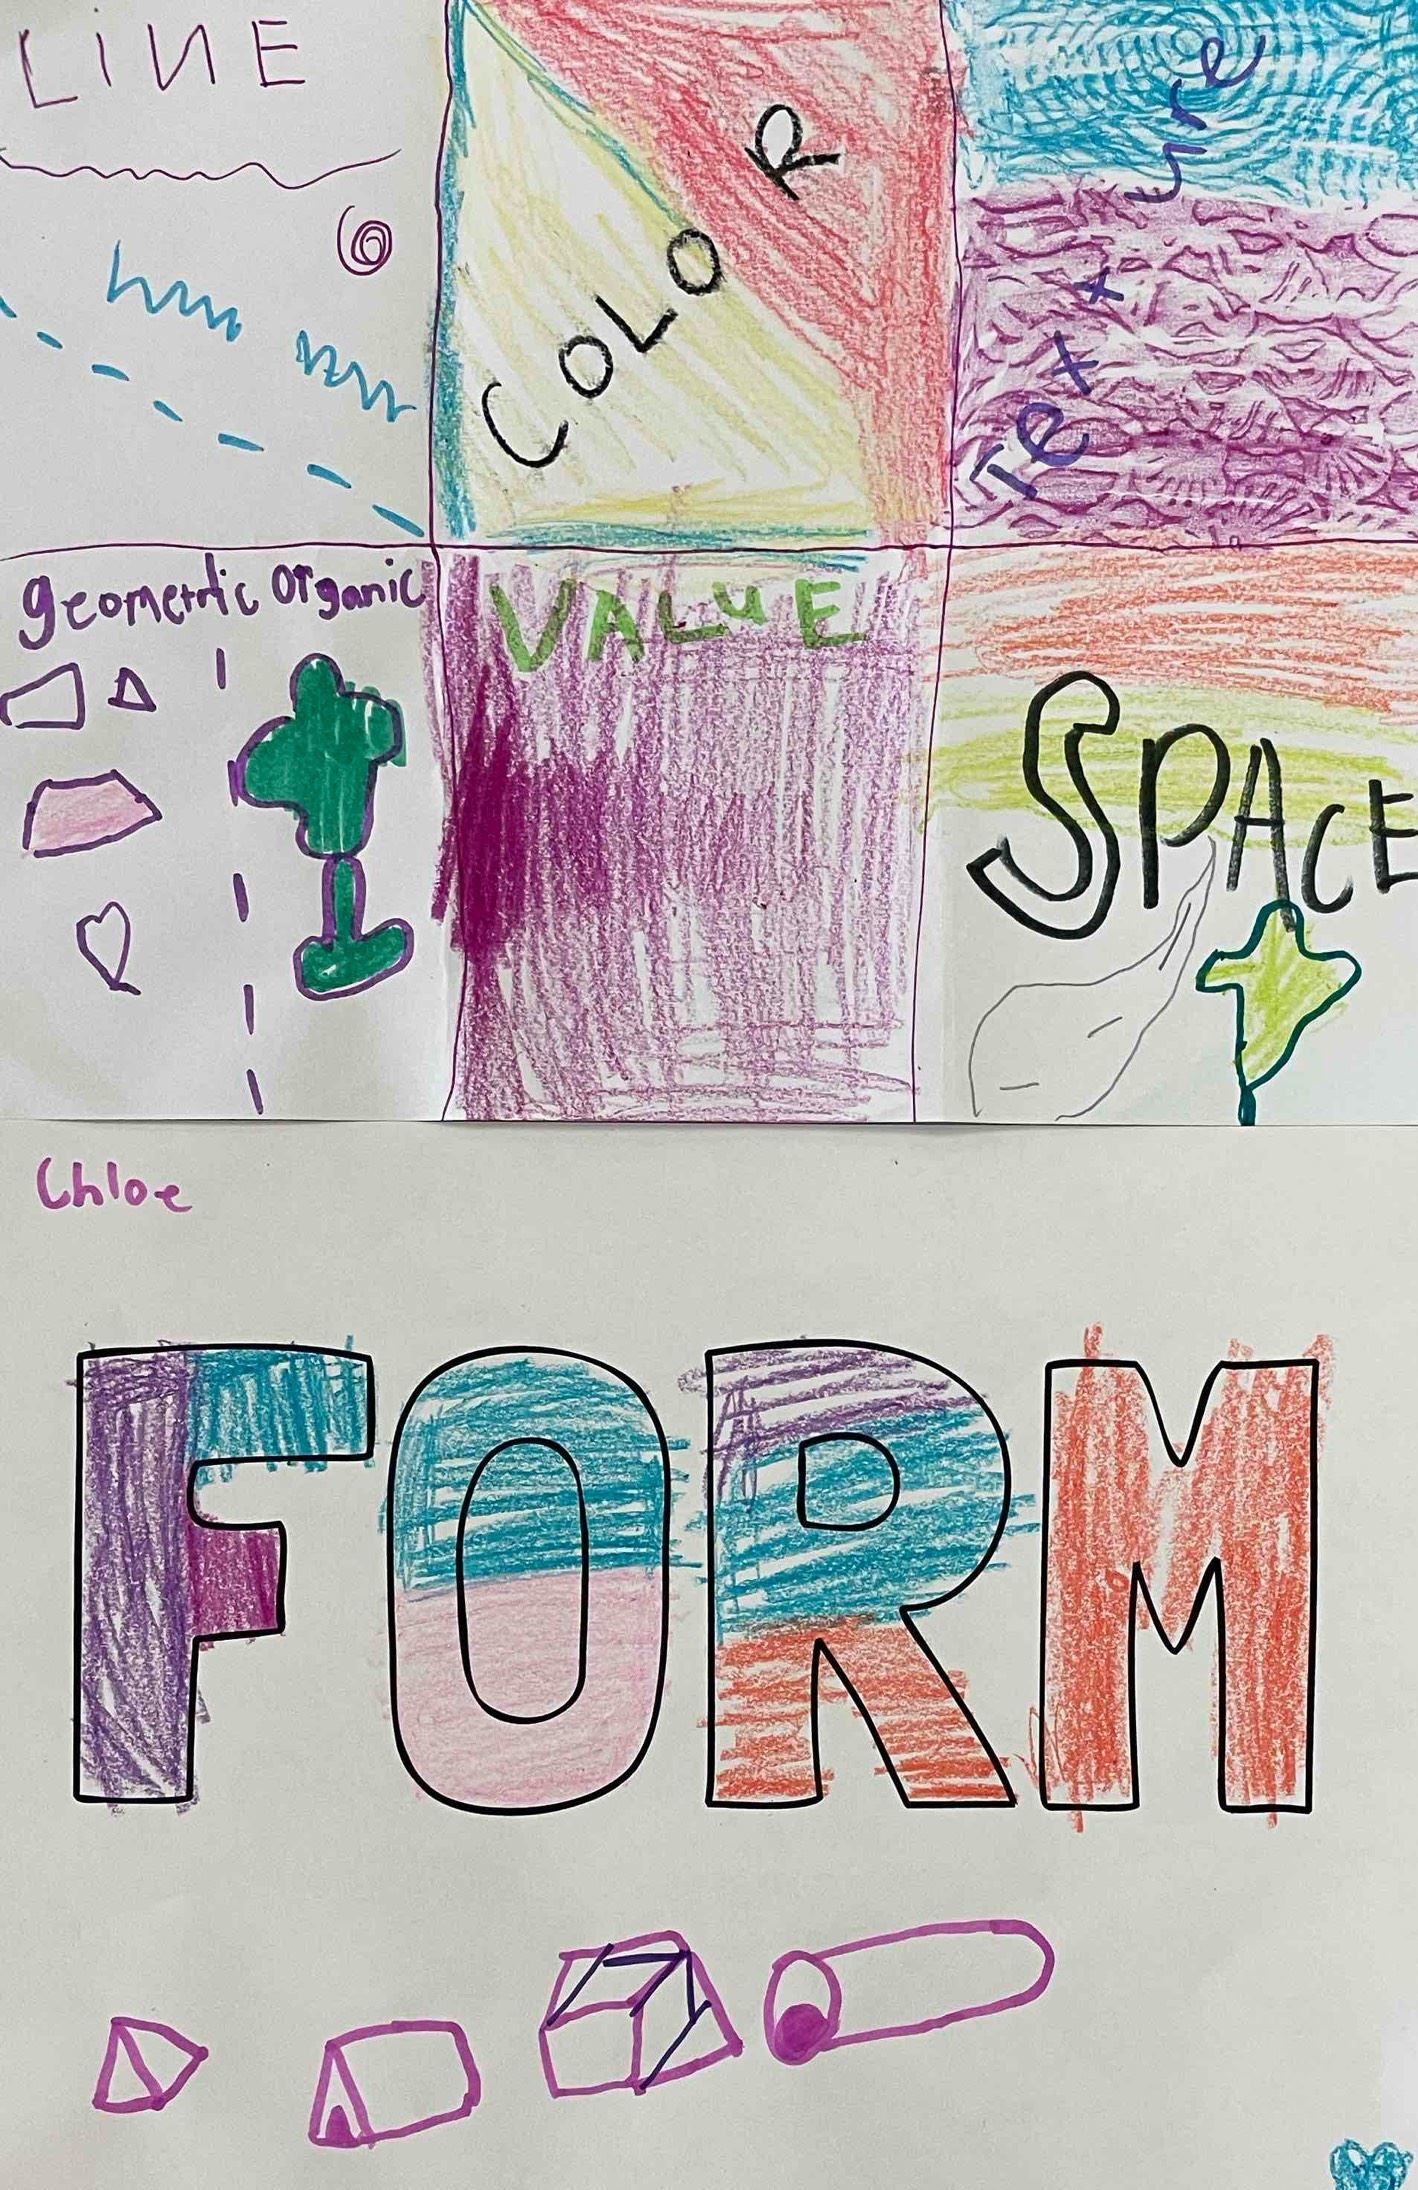 LINE
COLOR
Texture
geometric organic
VALUE
SPACE
Chloe
FORM